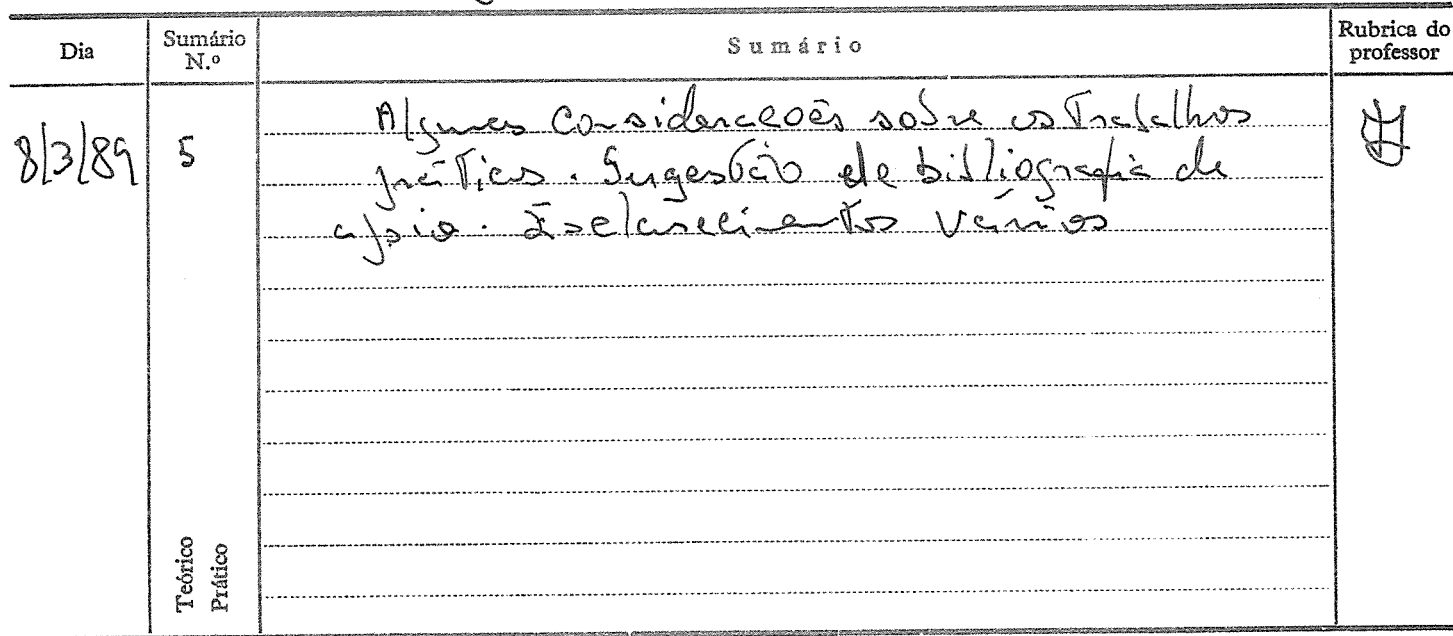 Dia Sumário N.º Sumário Rubrica do professor
8/3/89 5 Algumas Considerações sobre os Trabalhos
práticos. Sugestão de bibliografia de
apoio. Esclarecimentos Vários
Teórico
Prático